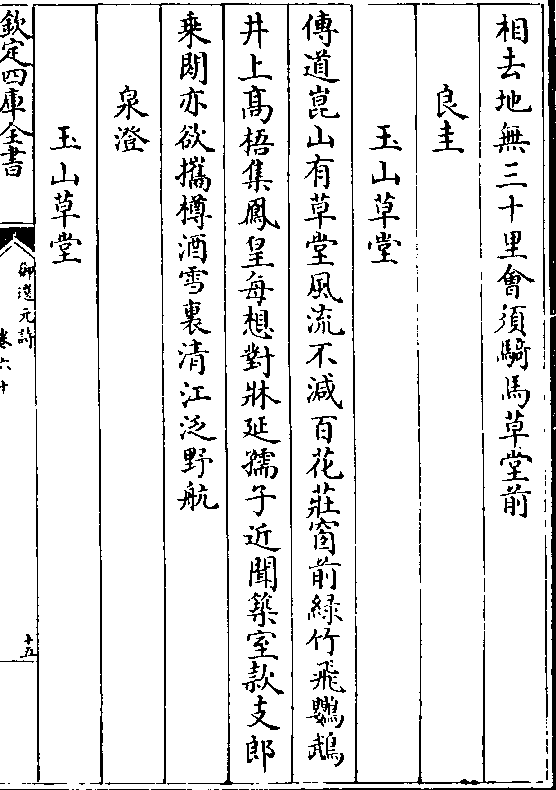 相去地無三十里會須騎馬草堂前
良圭
玉山草堂
傳道崑山有草堂風流不減百花莊窗前緑竹飛鸚鵡
井上髙梧集鳳皇每想對牀延孺子近聞築室款支郎
乗閒亦欲攜樽酒雪裏清江泛野航
泉澄
玉山草堂
欽定四庫全書
御選元詩
卷六十
十五